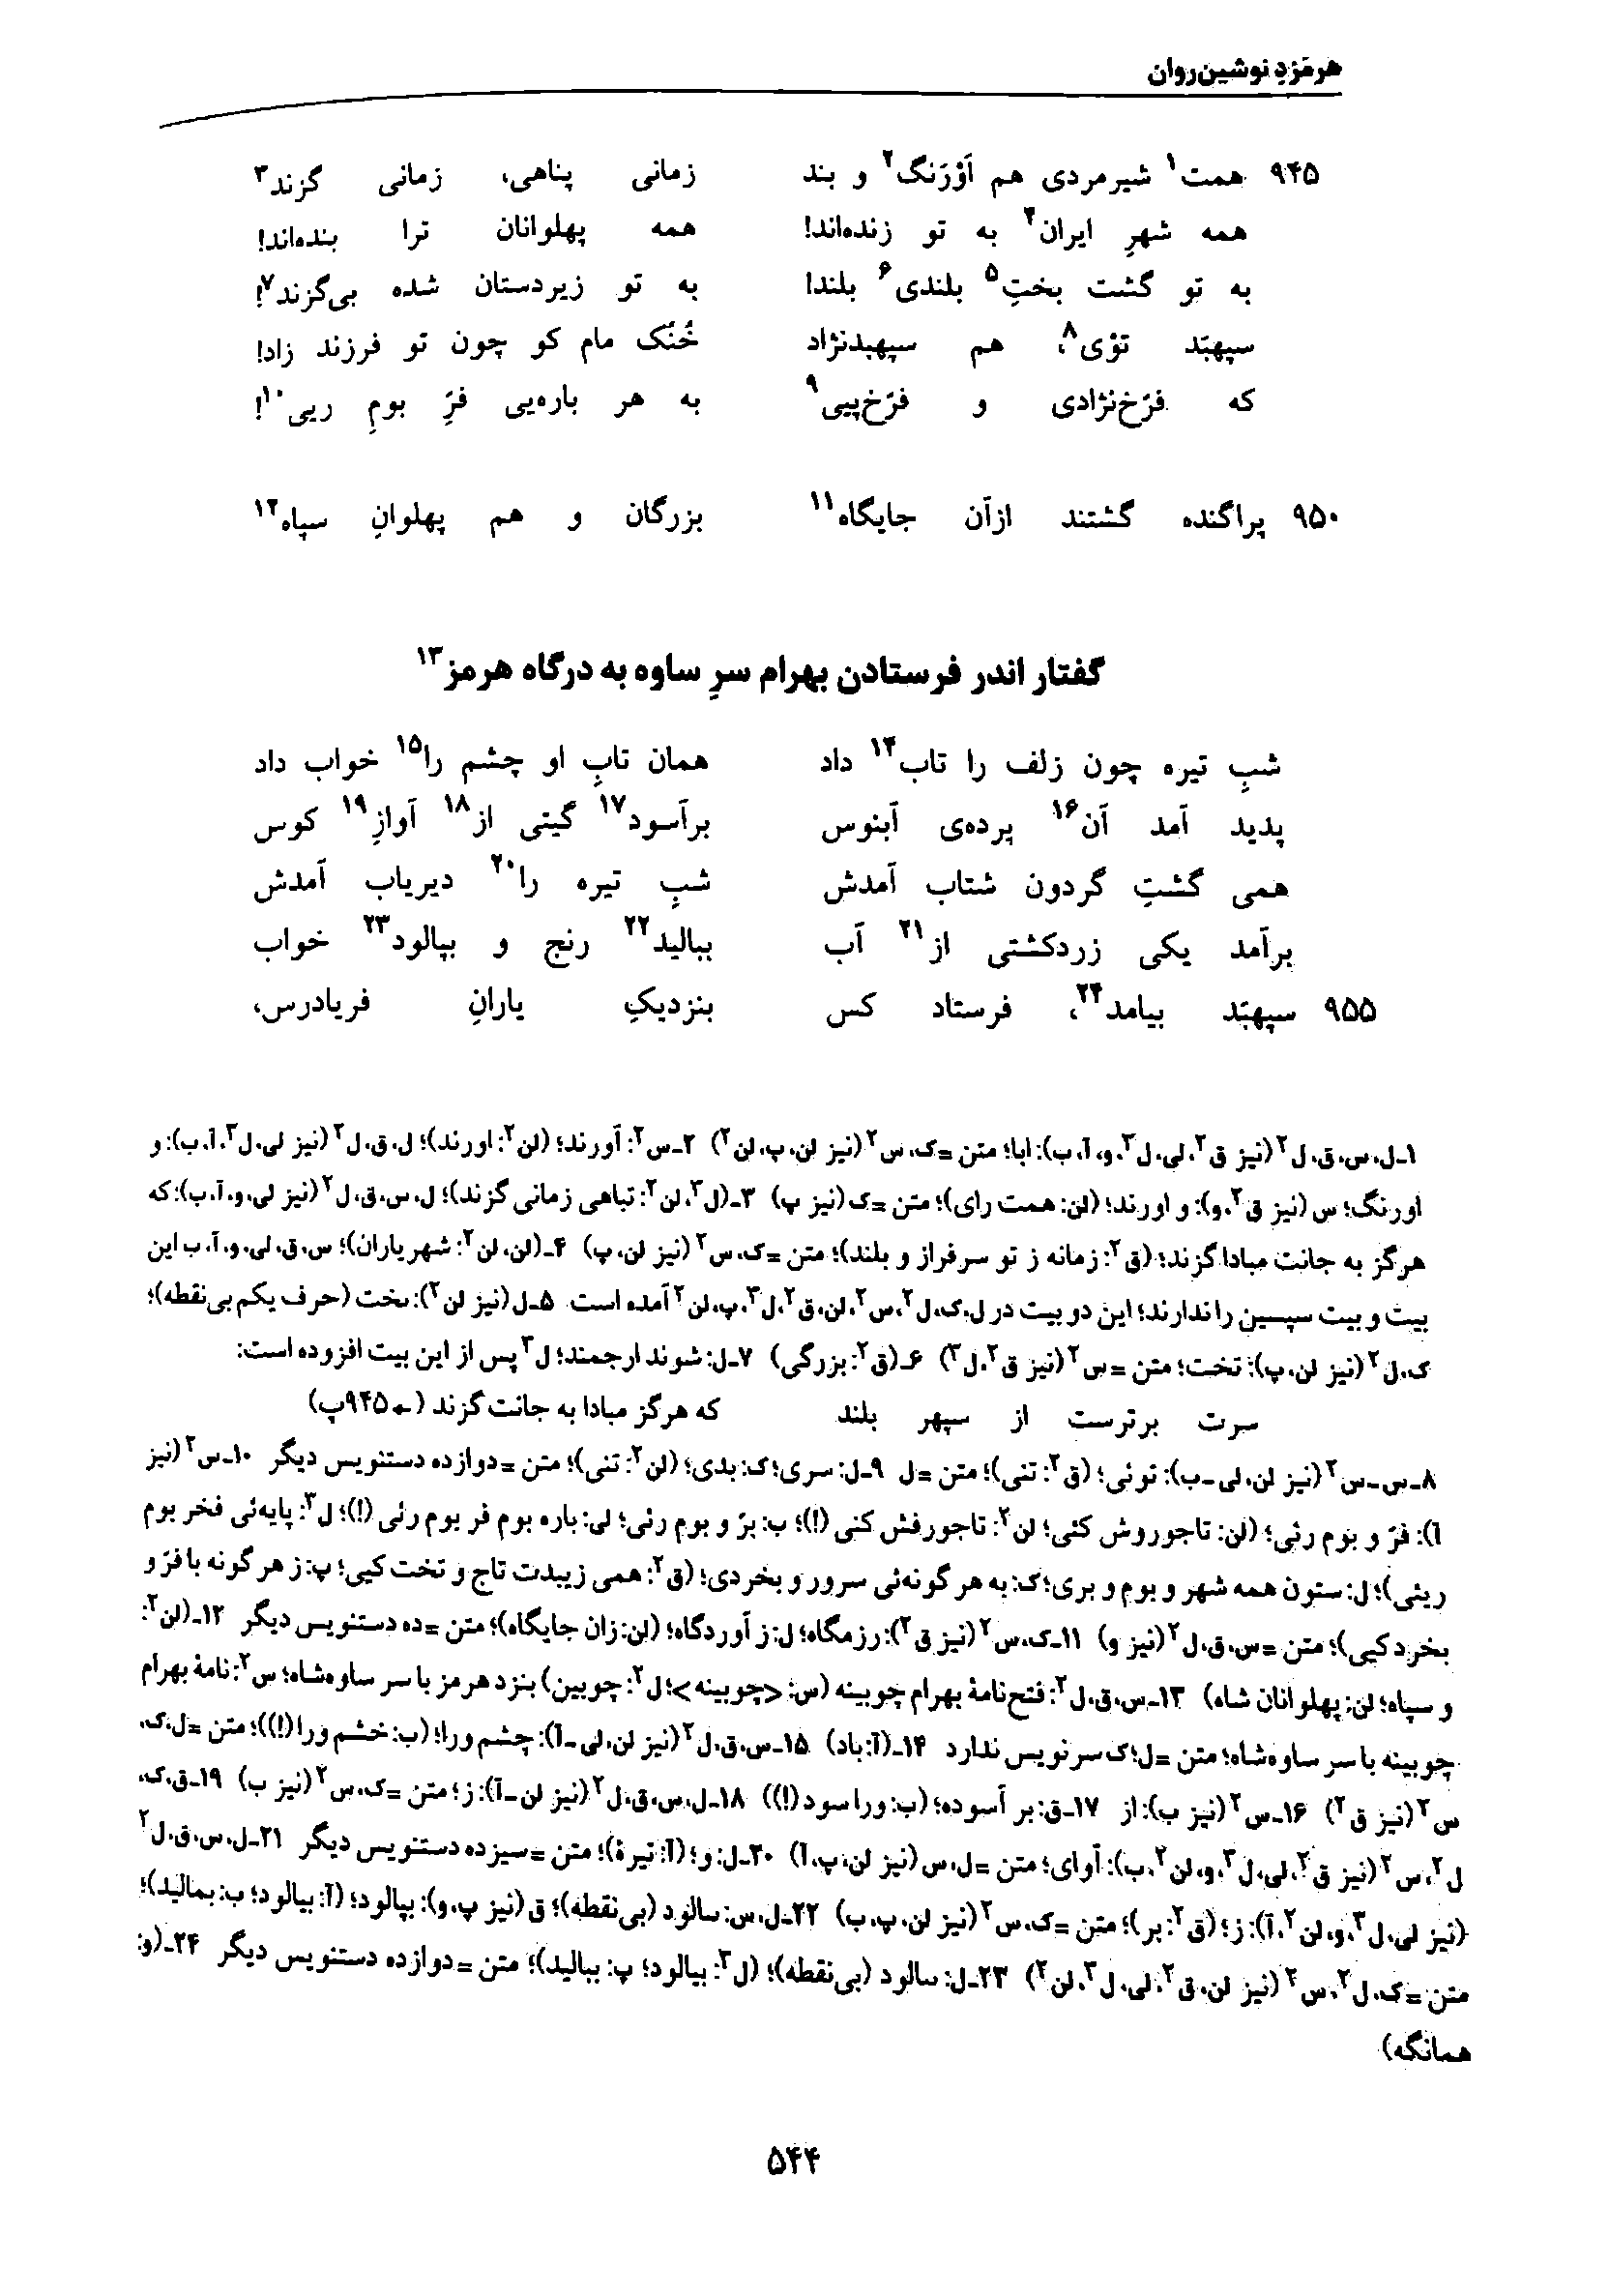 هرمَزدِ نوشین‌روان
۹۴۵ همت۱ شیرمردی هم اَوْرَنگ۲ و بند زمانی پناهی، زمانی گزند۳
همه شهرِ ایران۴ به تو زنده‌اند! همه پهلوانان ترا بنده‌اند!
به تو گشت بختِ۵ بلندی۶ بلند! به تو زیردستان شده بی‌گزند۷!
سپهبَد توٗی۸، هم سپهبدنژاد خُنُک مام کو چون تو فرزند زاد!
که فرّخ‌نژادی و فرّخ‌پیی۹ به هر باره‌یی فرِّ بومِ ریی۱۰!
۹۵۰ پراگنده گشتند ازآن جایگاه۱۱ بزرگان و هم پهلوانِ سپاه۱۲
گفتار اندر فرستادن بهرام سرِ ساوه به درگاه هرمز۱۳
شبِ تیره چون زلف را تاب۱۴ داد همان تابِ او چشم را۱۵ خواب داد
پدید آمد آن۱۶ پرده‌ی آبنوس برآسود۱۷ گیتی از۱۸ آوازِ۱۹ کوس
همی گشتِ گردون شتاب آمدش شبِ تیره را۲۰ دیریاب آمدش
برآمد یکی زردکشتی از۲۱ آب ببالید۲۲ رنج و بپالود۲۳ خواب
۹۵۵ سپهبَد بیامد۲۴، فرستاد کس بنزدیکِ یارانِ فریادرس،
۱ـ‌ل،س،ق،ل۲ (نیز ق۲، لی، ل۳، و، آ، ب): ابا؛ متن = ک، س۲ (نیز لن، پ، لن۲) ۲ـ‌س۲: آورند؛ (لن۲: اورند)؛ ل، ق، ل۲ (نیز لی، ل۳، آ، ب): و
اورنگ؛ س (نیز ق۲، و): و اورند؛ (لن: همت رای)؛ متن = ک (نیز پ) ۳ـ(ل۳، لن۲: تباهی زمانی گزند)؛ ل، س، ق، ل۲ (نیز لی، و، آ، ب): که
هرگز به جانت مبادا گزند؛ (ق۲: زمانه ز تو سرفراز و بلند)؛ متن = ک، س۲ (نیز لن، پ) ۴ـ(لن، لن۲: شهریاران)؛ س، ق، لی، و، آ، ب این
بیت و بیت سپسین را ندارند؛ این دو بیت در ل، ک، ل۲، س۲، لن، ق۲، ل۳، پ، لن۲ آمده است ۵ـ‌ل (نیز لن۲): ٮخت (حرف یکم بی‌نقطه)؛
ک، ل۲ (نیز لن، پ): تخت؛ متن = س۲ (نیز ق۲، ل۳) ۶ـ(ق۲: بزرگی) ۷ـ‌ل: شوند ارجمند؛ ل۳ پس از این بیت افزوده است:
سرت برترست از سپهر بلند که هرگز مبادا به جانت گزند (← ۹۴۵پ)
۸ـ‌س ـ س۲ (نیز لن، لی ـ ب): توئی؛ (ق۲: تنی)؛ متن = ل ۹ـ‌ل: سری؛ ک: بدی؛ (لن۲: تنی)؛ متن = دوازده دستنویس دیگر ۱۰ـ‌س۲ (نیز
آ): فرّ و بوم رئی؛ (لن: تاجوروش کئی؛ لن۲: تاجورفش کنی (!)؛ ب: برّ و بوم رئی؛ لی: باره بوم فر بوم رئی (!)؛ ل۳: پایه‌ئی فخر بوم
ریئی)؛ ل: ستون همه شهر و بوم و بری؛ ک: به هر گونه‌ئی سرور و بخردی؛ (ق۲: همی زیبدت تاج و تخت کیی؛ پ: ز هر گونه با فرّ و
بخرد کیی)؛ متن = س، ق، ل۲ (نیز و) ۱۱ـ‌ک، س۲ (نیز ق۲): رزمگاه؛ ل: ز آوردگاه؛ (لن: زان جایگاه)؛ متن = ده دستنویس دیگر ۱۲ـ(لن۲:
و سپاه؛ لن: پهلوانان شاه) ۱۳ـ‌س، ق، ل۲: فتح‌نامهٔ بهرام چوبینه (س: <چوبینه>؛ ل۲: چوبین) بنزد هرمز با سر ساوه‌شاه؛ س۲: نامهٔ بهرام
چوبینه با سر ساوه‌شاه؛ متن = ل؛ ک سرنویس ندارد ۱۴ـ(آ: باد) ۱۵ـ‌س، ق، ل۲ (نیز لن، لی ـ آ): چشم ورا؛ (ب: خشم ورا (!))؛ متن = ل، ک،
س۲ (نیز ق۲) ۱۶ـ‌س۲ (نیز ب): از ۱۷ـ‌ق: بر آسوده؛ (ب: ورا سود (!)) ۱۸ـ‌ل، س، ق، ل۲ (نیز لن ـ آ): ز؛ متن = ک، س۲ (نیز ب) ۱۹ـ‌ق، ک،
ل۲، س۲ (نیز ق۲، لی، ل۳، و، لن۲، ب): آوای؛ متن = ل، س (نیز لن، پ، آ) ۲۰ـ‌ل: و؛ (آ: تیرهٔ)؛ متن = سیزده دستنویس دیگر ۲۱ـ‌ل، س، ق، ل۲
(نیز لی، ل۳، و، لن۲، آ): ز؛ (ق۲: بر)؛ متن = ک، س۲ (نیز لن، پ، ب) ۲۲ـ‌ل، س: ٮٮالود (بی‌نقطه)؛ ق (نیز پ، و): بپالود؛ (آ: بیالود؛ ب: بمالید)؛
متن = ک، ل۲، س۲ (نیز لن، ق۲، لی، ل۳، لن۲) ۲۳ـ‌ل: ٮٮالود (بی‌نقطه)؛ (ل۳: بیالود؛ پ: ببالید)؛ متن = دوازده دستنویس دیگر ۲۴ـ(و:
همانگه)
۵۴۴